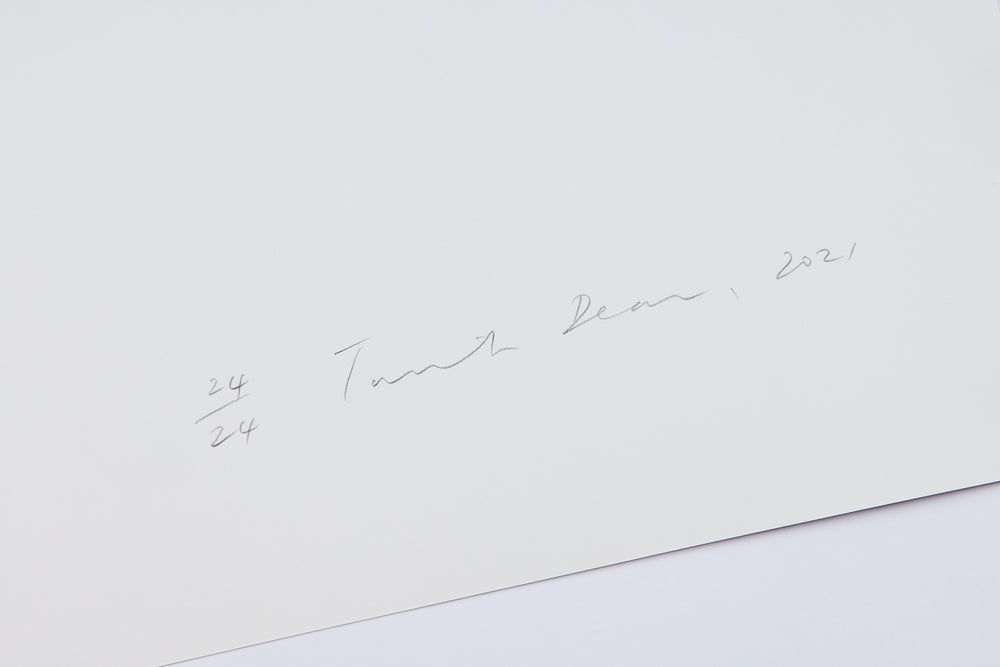 24/24 Tacita Dean, 2021